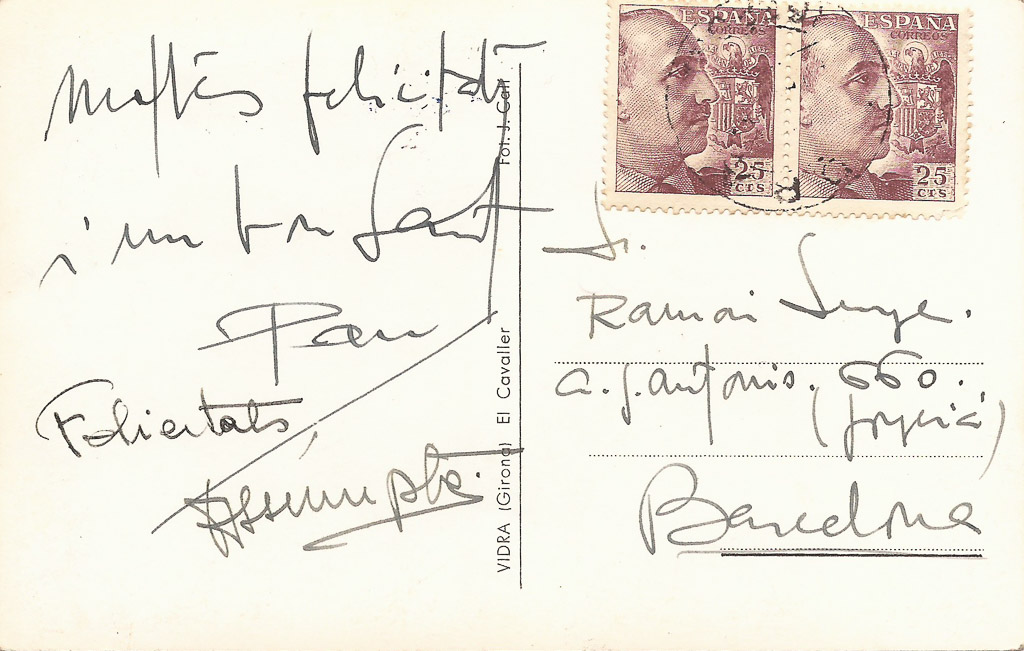 Moltes felicitats
i un bon Sant
Pau
Felicitats
Assumpta.
VIDRA (Girona) El Cavaller
Fot. J. Carl
ESPAÑA
CORREOS
25
CTS
ESPAÑA
CORREOS
25
CTS
Sr.
Ramon
a. S. Antonis. 660.
Barcelona